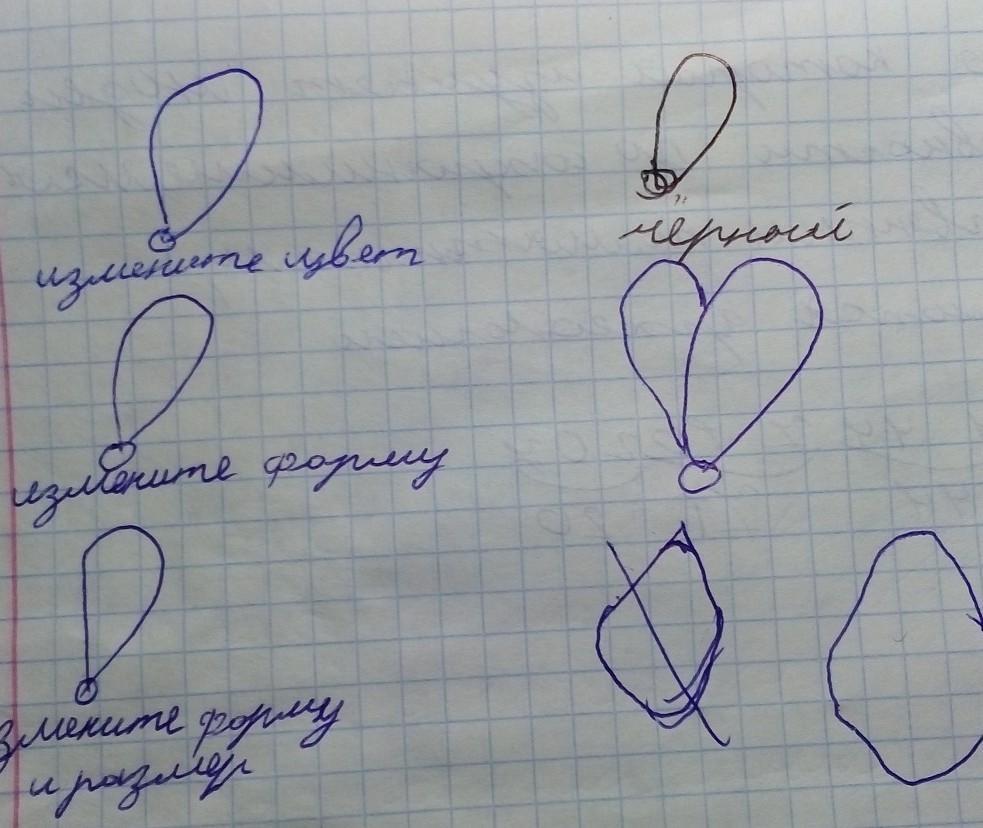 измените цвет
чёрный
измените форму
измените форму
и размер